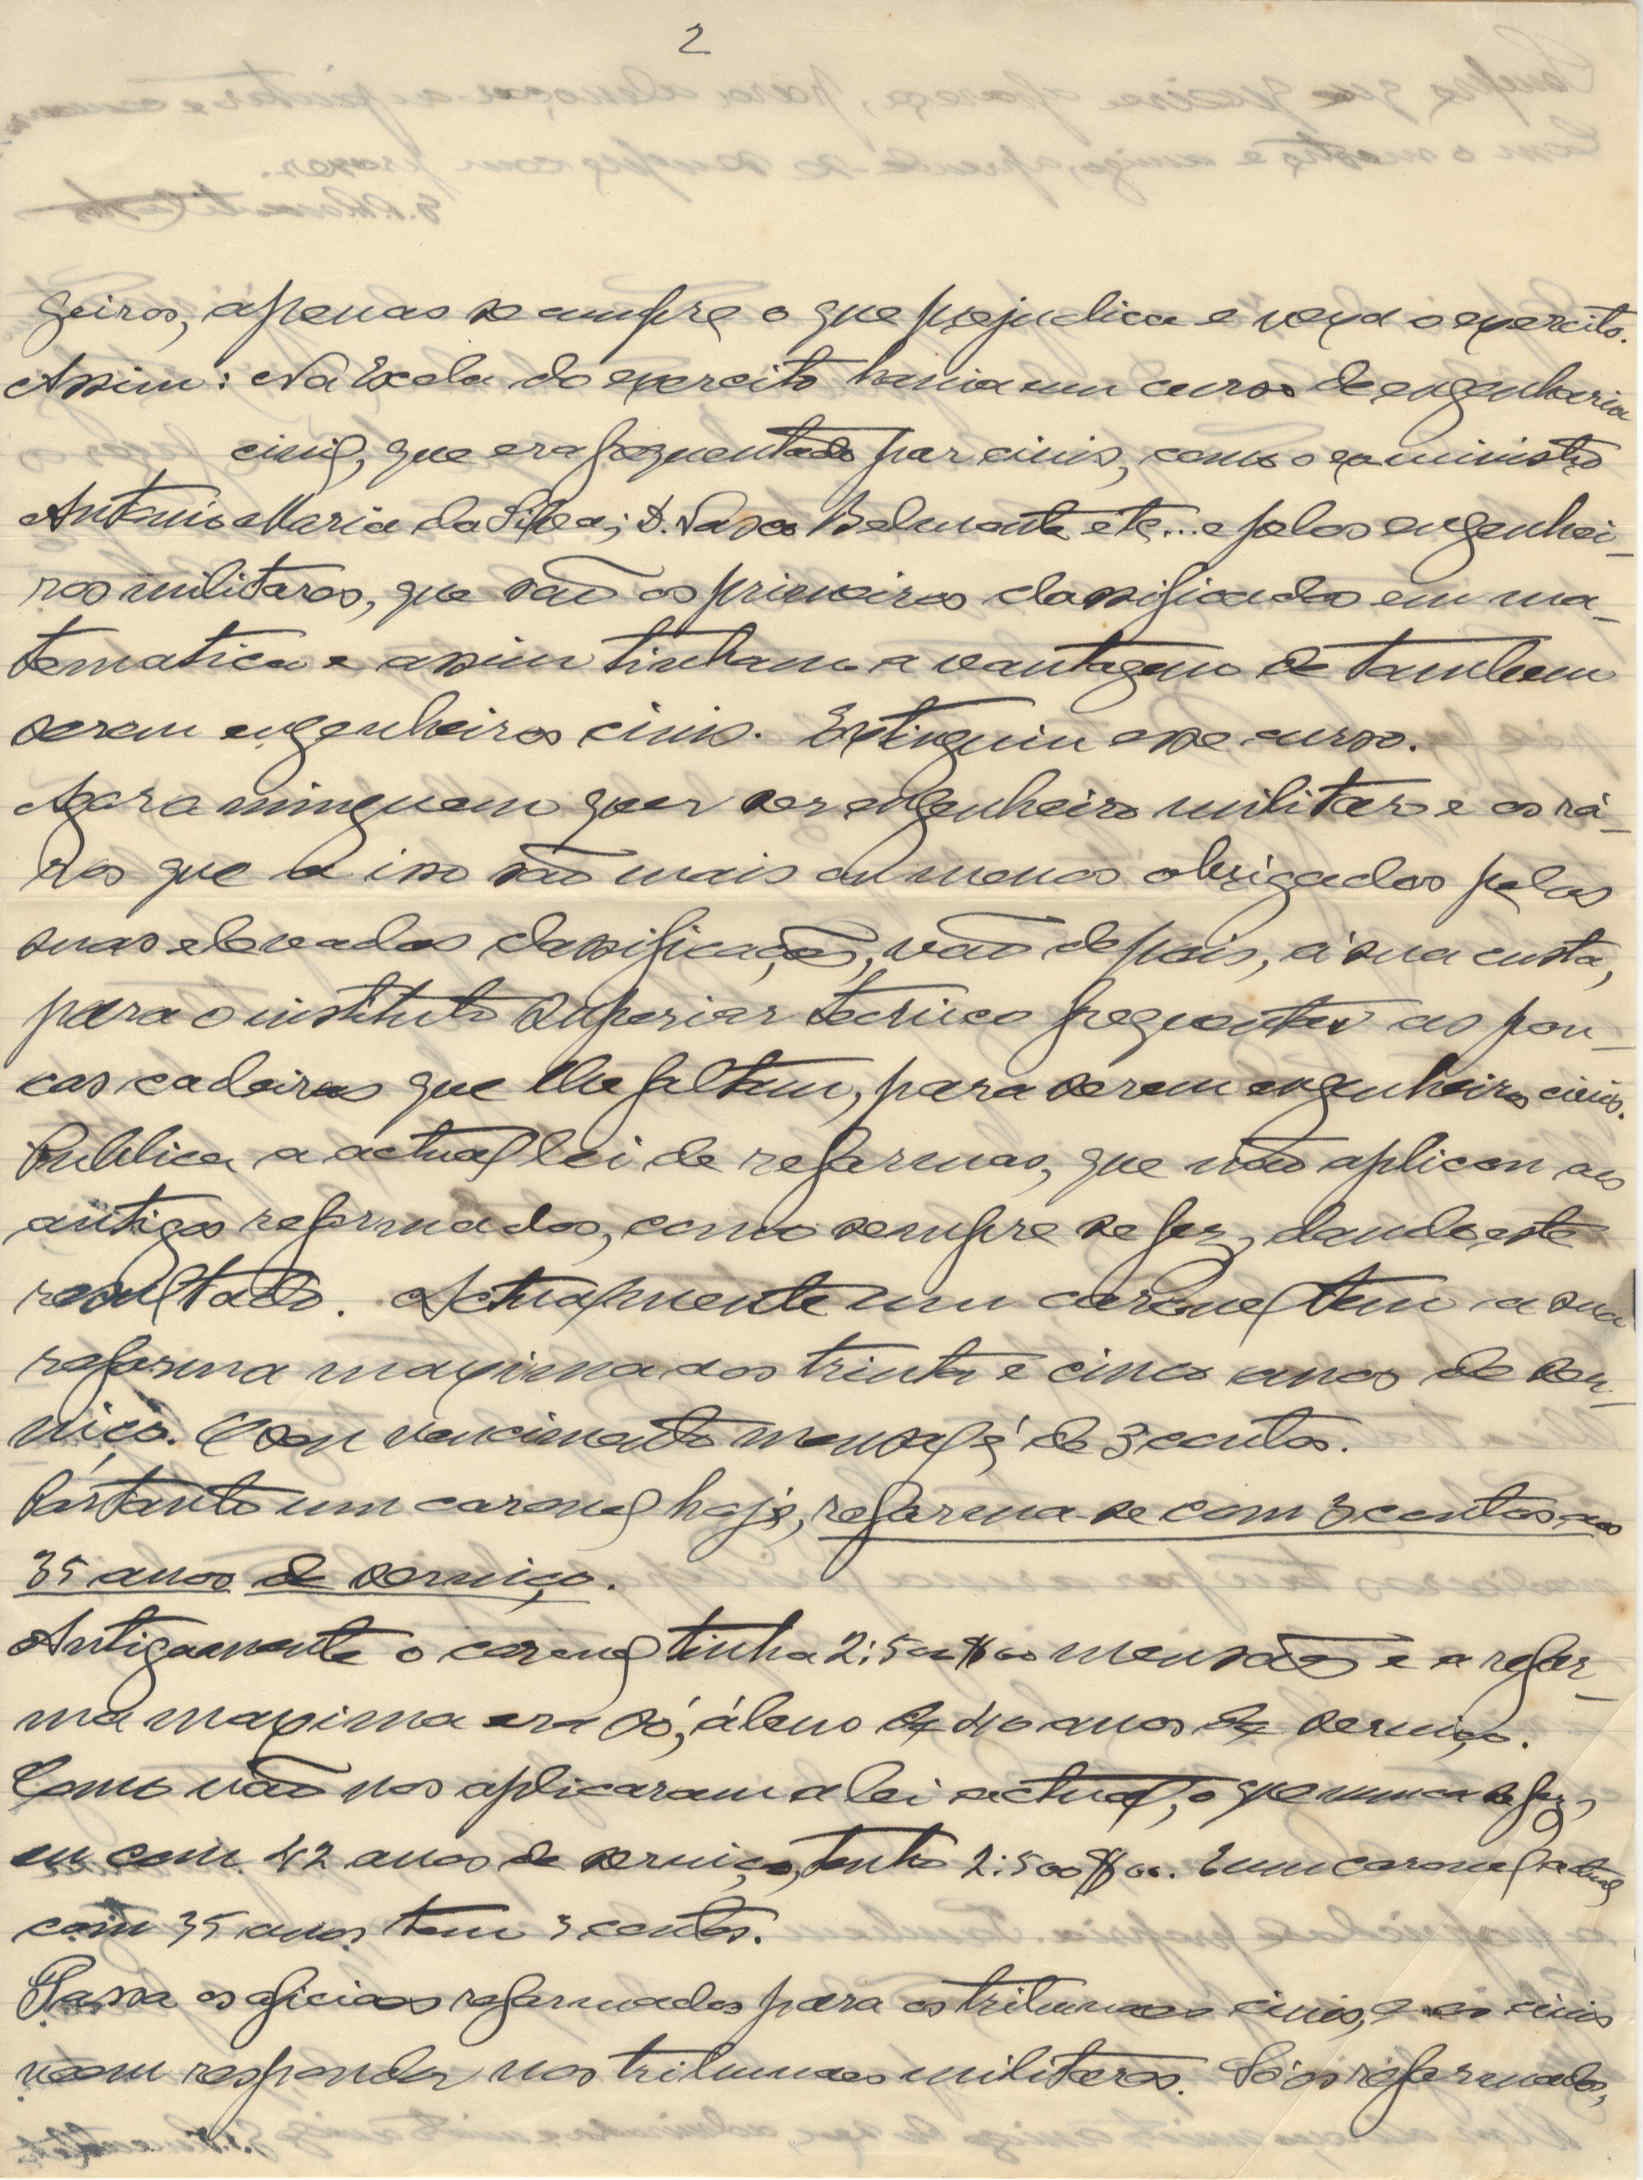 2
geiros, apenas se cumpre o que prejudica e vexa o exercito.
Assim: Na Escola do exercito havia um curso de engenharia
civil, que era frequentado por civis, como o ex ministro
Antonio Maria da Silva; D. Vasco Belmonte etc... e pelos engenhei-
ros militares, que são os primeiros classificados em ma-
tematica e assim tinham a vantagem de tambem
serem engenheiros civis. Extinguiu esse curso.
Agora ninguem quer ser engenheiro militar e os rá-
ros que a isso são mais ou menos obrigados pelas
suas elevadas classificações, vão depois, á sua custa,
para o instituto superior tecnico frequentar as pou-
cas cadeiras que lhe faltam, para serem engenheiros civis.
Publica a actual lei de reformas, que não aplicou aos
antigos reformados, como sempre se fez, dando este
resultado. Actualmente um coronel tem a sua
reforma maxima aos trinta e cinco anos de ser-
viço. O seu vencimento mensal é de 3 contos.
Portanto um coronel hoje, reforma-se com 3 contos aos
35 anos de serviço.
Antigamente o coronel tinha 2:500$00 mensaes e a refor-
ma maxima era só, áleno de 40 anos de serviço.
Como não nos aplicaram a lei actual, o que nunca se fez,
eu com 42 anos de serviço, tenho 2:500$00. E um coronel actual
com 35 anos tem 3 contos.
Passa os oficiaes reformados para os tribunaes civis, e os civis
veem responder nos tribunaes militares. Só os reformados,